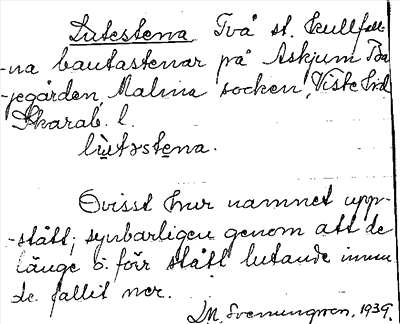 Lutestena Två st. kullfall-
-na bautastenar på Askjum Ba
-gegården, Malma socken, Viste hrd
Skarab. l.
lùtəstena.
Ovisst hur namnet upp-
-stått; synbarligen genom att de
länge o. förr stått lutande innan
de fallit ner.
D.N. Svenungson, 1939.